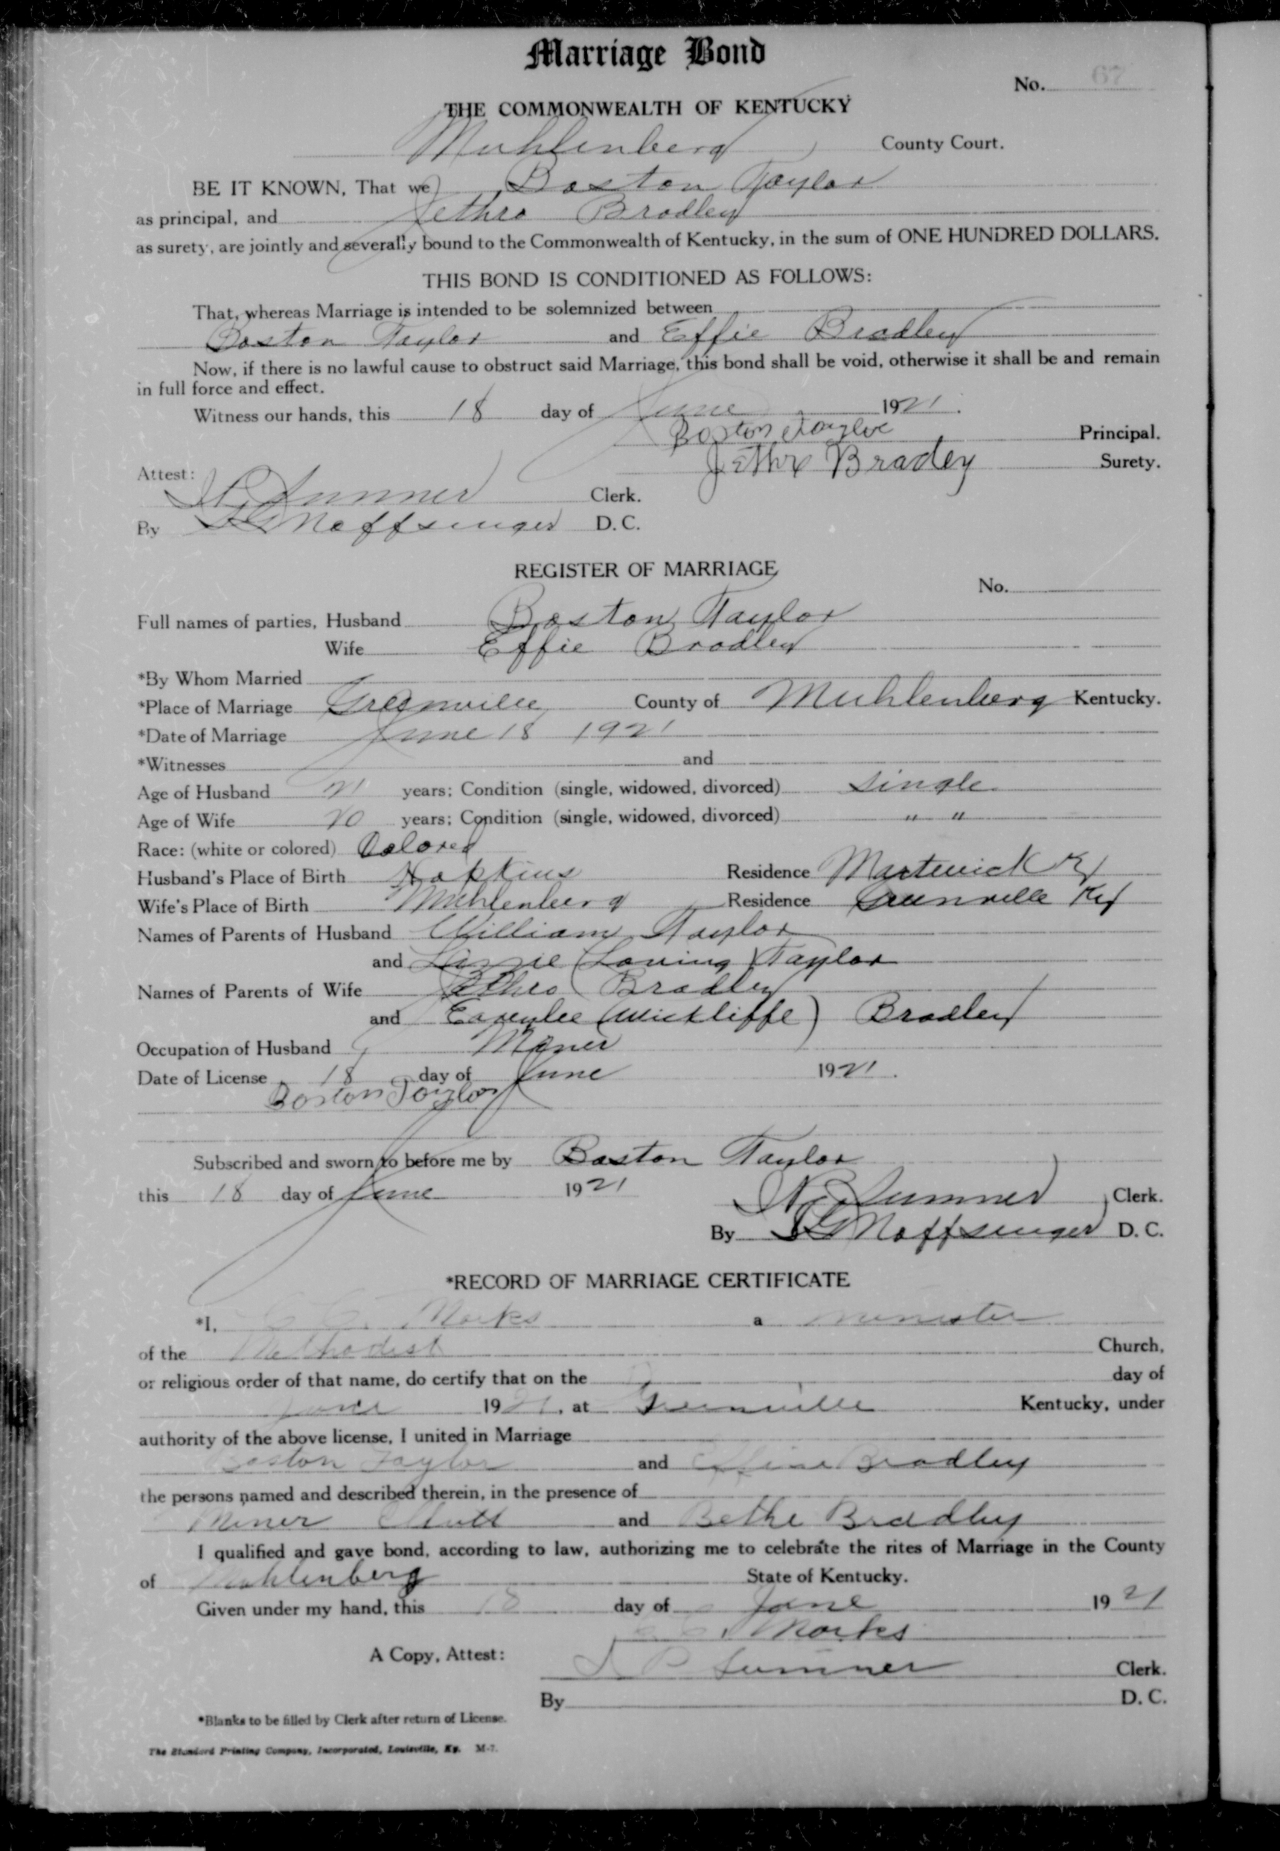 Marriage Bond
No. 67
THE COMMONWEALTH OF KENTUCKY
Muhlenberg County Court.
BE IT KNOWN, That we Boston Taylor
as principal, and Jethro Bradley
as surety, are jointly and severally bound to the Commonwealth of Kentucky, in the sum of ONE HUNDRED DOLLARS.
THIS BOND IS CONDITIONED AS FOLLOWS:
That, whereas Marriage is intended to be solemnized between
Boston Taylor and Effie Bradley
Now, if there is no lawful cause to obstruct said Marriage, this bond shall be void, otherwise it shall be and remain
in full force and effect.
Witness our hands, this 18 day of June 1921.
Boston Taylor Principal.
Jethro Bradley Surety.
Attest:
Sumner Clerk.
By Noffsinger D. C.
REGISTER OF MARRIAGE
No.
Full names of parties, Husband Boston Taylor
Wife Effie Bradley
*By Whom Married
*Place of Marriage Greenville County of Muhlenberg Kentucky.
*Date of Marriage June 18 1921
*Witnesses and
Age of Husband 21 years; Condition (single, widowed, divorced) Single
Age of Wife 20 years; Condition (single, widowed, divorced) " "
Race: (white or colored) Colored
Husband's Place of Birth Hopkins Residence Martwick Ky
Wife's Place of Birth Muhlenberg Residence Greenville Ky
Names of Parents of Husband William Taylor
and Lizzie (Loving) Taylor
Names of Parents of Wife Jethro Bradley
and (Wickliffe) Bradley
Occupation of Husband Miner
Date of License 18 day of June 1921.
Boston Taylor
Subscribed and sworn to before me by Boston Taylor
this 18 day of June 1921
Sumner Clerk.
By Noffsinger D. C.
*RECORD OF MARRIAGE CERTIFICATE
*I, C. C. Marks a minister
of the Methodist Church,
or religious order of that name, do certify that on the day of
June 1921, at Greenville Kentucky, under
authority of the above license, I united in Marriage
Boston Taylor and Effie Bradley
the persons named and described therein, in the presence of
Miner and Bethe Bradley
I qualified and gave bond, according to law, authorizing me to celebrate the rites of Marriage in the County
of Muhlenberg State of Kentucky.
Given under my hand, this 18 day of June 1921
C. C. Marks
A Copy, Attest: Sumner Clerk.
By D. C.
*Blanks to be filled by Clerk after return of License.
The Standard Printing Company, Incorporated, Louisville, Ky. M-7.